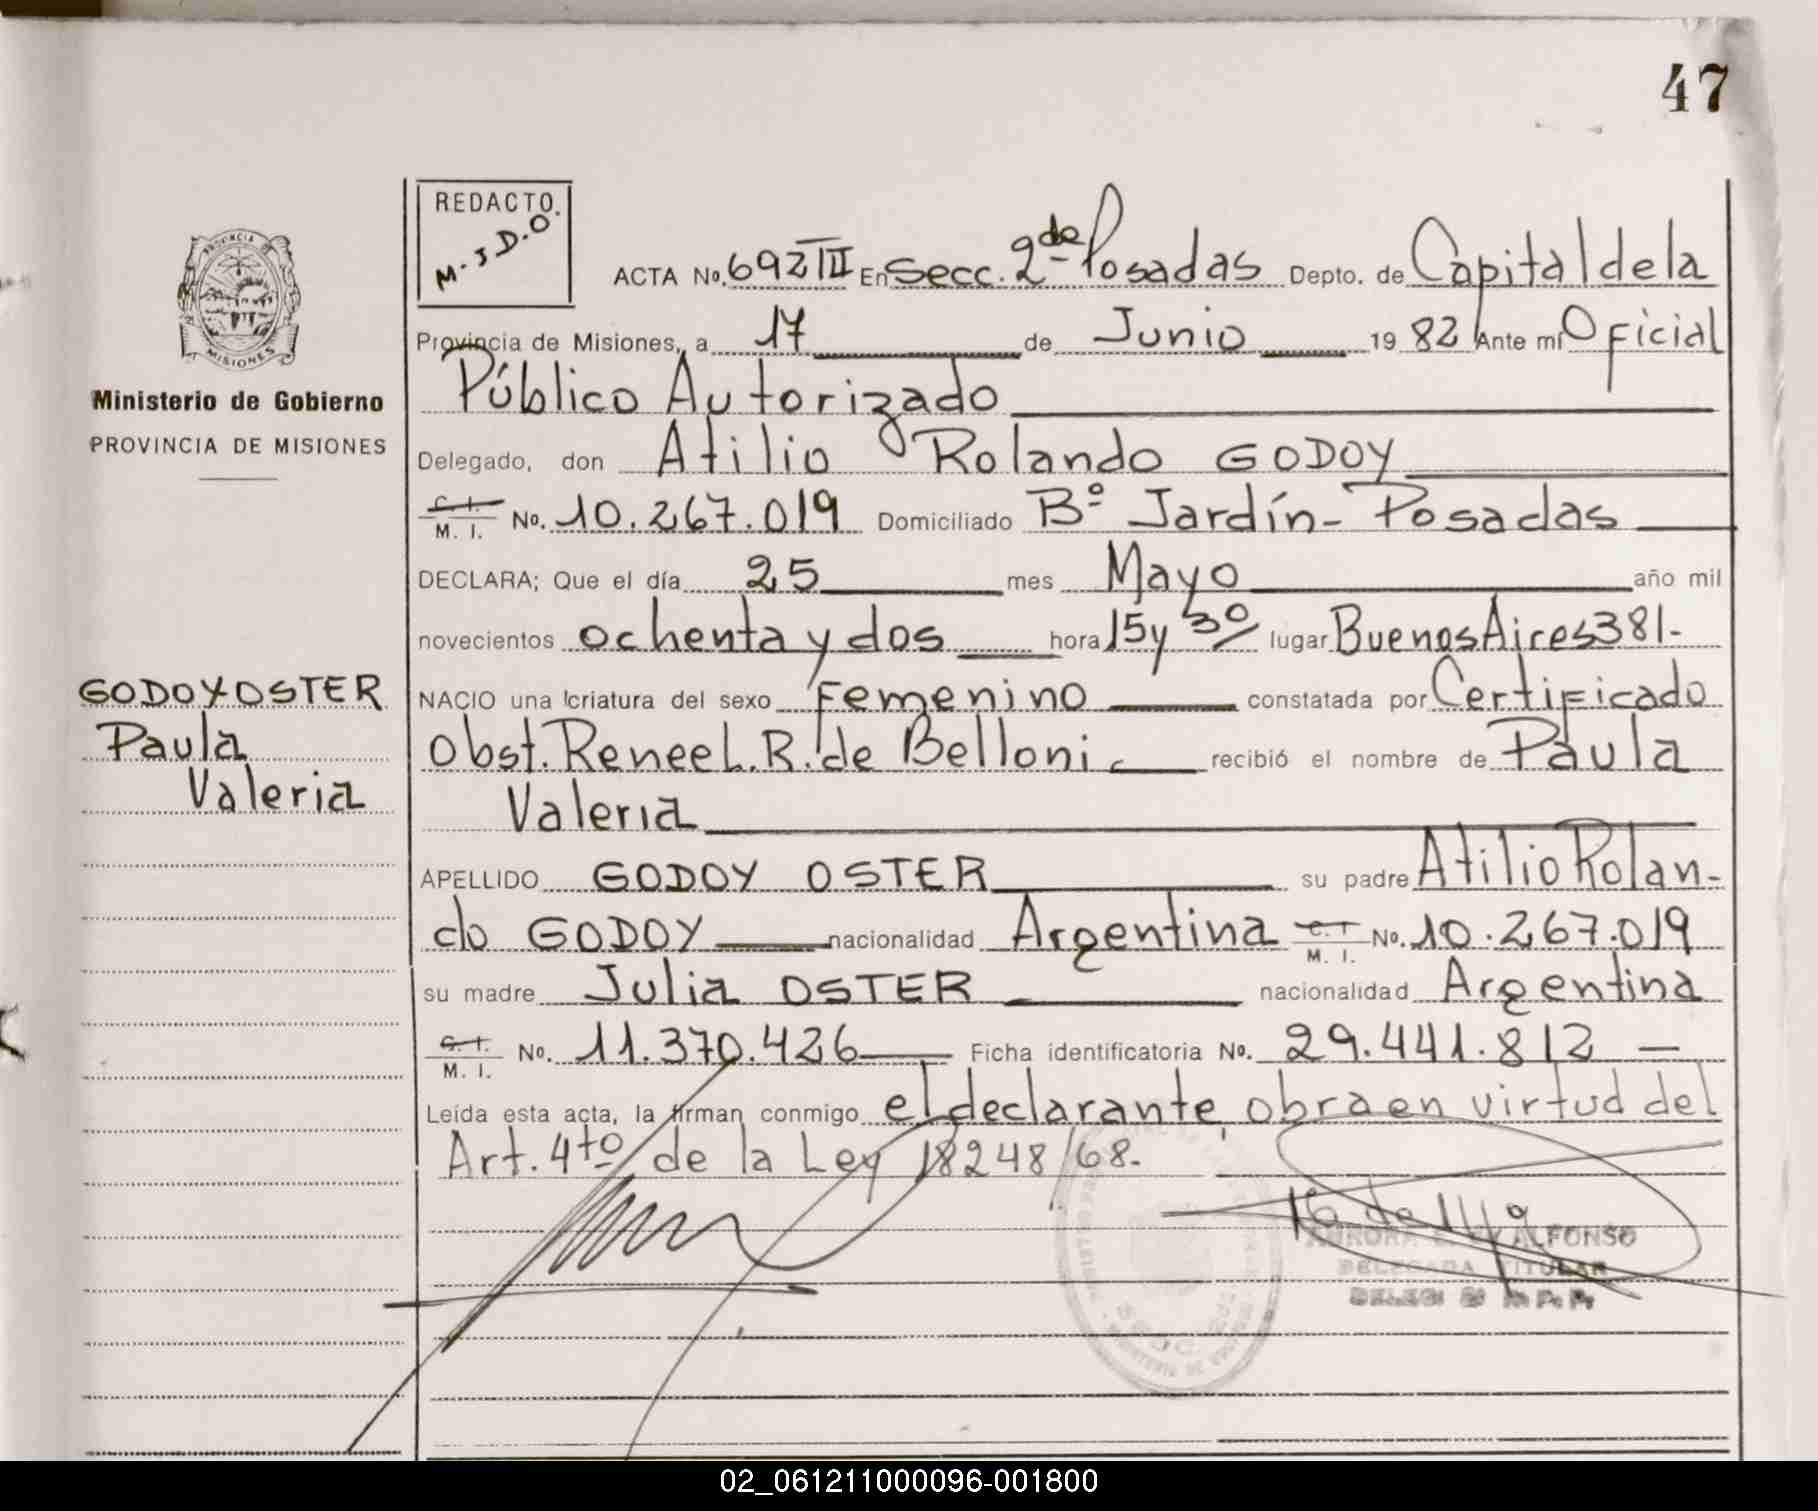 47
REDACTO.
M-J D.O
PROVINCIA
MISIONES
Ministerio de Gobierno
PROVINCIA DE MISIONES
ACTA No. 692 III En Secc. 2da Posadas Depto. de Capital de la
Provincia de Misiones, a 17 de Junio 19 82 Ante mí Oficial
Público Autorizado
Delegado, don Atilio Rolando GODOY
C. I. M. I. No. 10.267.019 Domiciliado Bº Jardín - Posadas
DECLARA; Que el día 25 mes Mayo año mil
novecientos ochenta y dos hora 15 y 30 lugar Buenos Aires 381-
GODOY OSTER
Paula
Valeria
NACIO una criatura del sexo Femenino constatada por Certificado
Obst. Renee L. R. de Belloni recibió el nombre de Paula
Valeria
APELLIDO GODOY OSTER su padre Atilio Rolan-
do GODOY nacionalidad Argentina C. I. M. I. No. 10.267.019
su madre Julia OSTER nacionalidad Argentina
C. I. M. I. No. 11.370.426 Ficha identificatoria No. 29.441.812 —
Leída esta acta, la firman conmigo el declarante, obra en virtud del
Art. 4to de la Ley 18248/68.-
ALFONSO
DELEGADA TITULAR
02_061211000096-001800